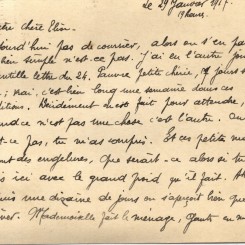 le 29 Janvier 1917.
19 heures.
tre chère Elin.
ourd'hui pas de courrier, alors on s'en pa
ien simple n'est-ce pas. J'ai eu l'autre jou
entille lettre du 24. Pauvre petite chérie, 17 jours s
; mais c'est bien long une semaine dans ces
ditions. Décidément est fait pour attendre
and ce n'est pas une chose c'est l'autre. En
st-ce pas, tu m'as compris. Et ces petites ma
ont des engelures, que serait-ce alors si tu
s ici avec le grand froid qu'il fait. Ah
uis une dizaine de jours on s'aperçoit bien que
iver. Mademoiselle fait le ménage, gants en m